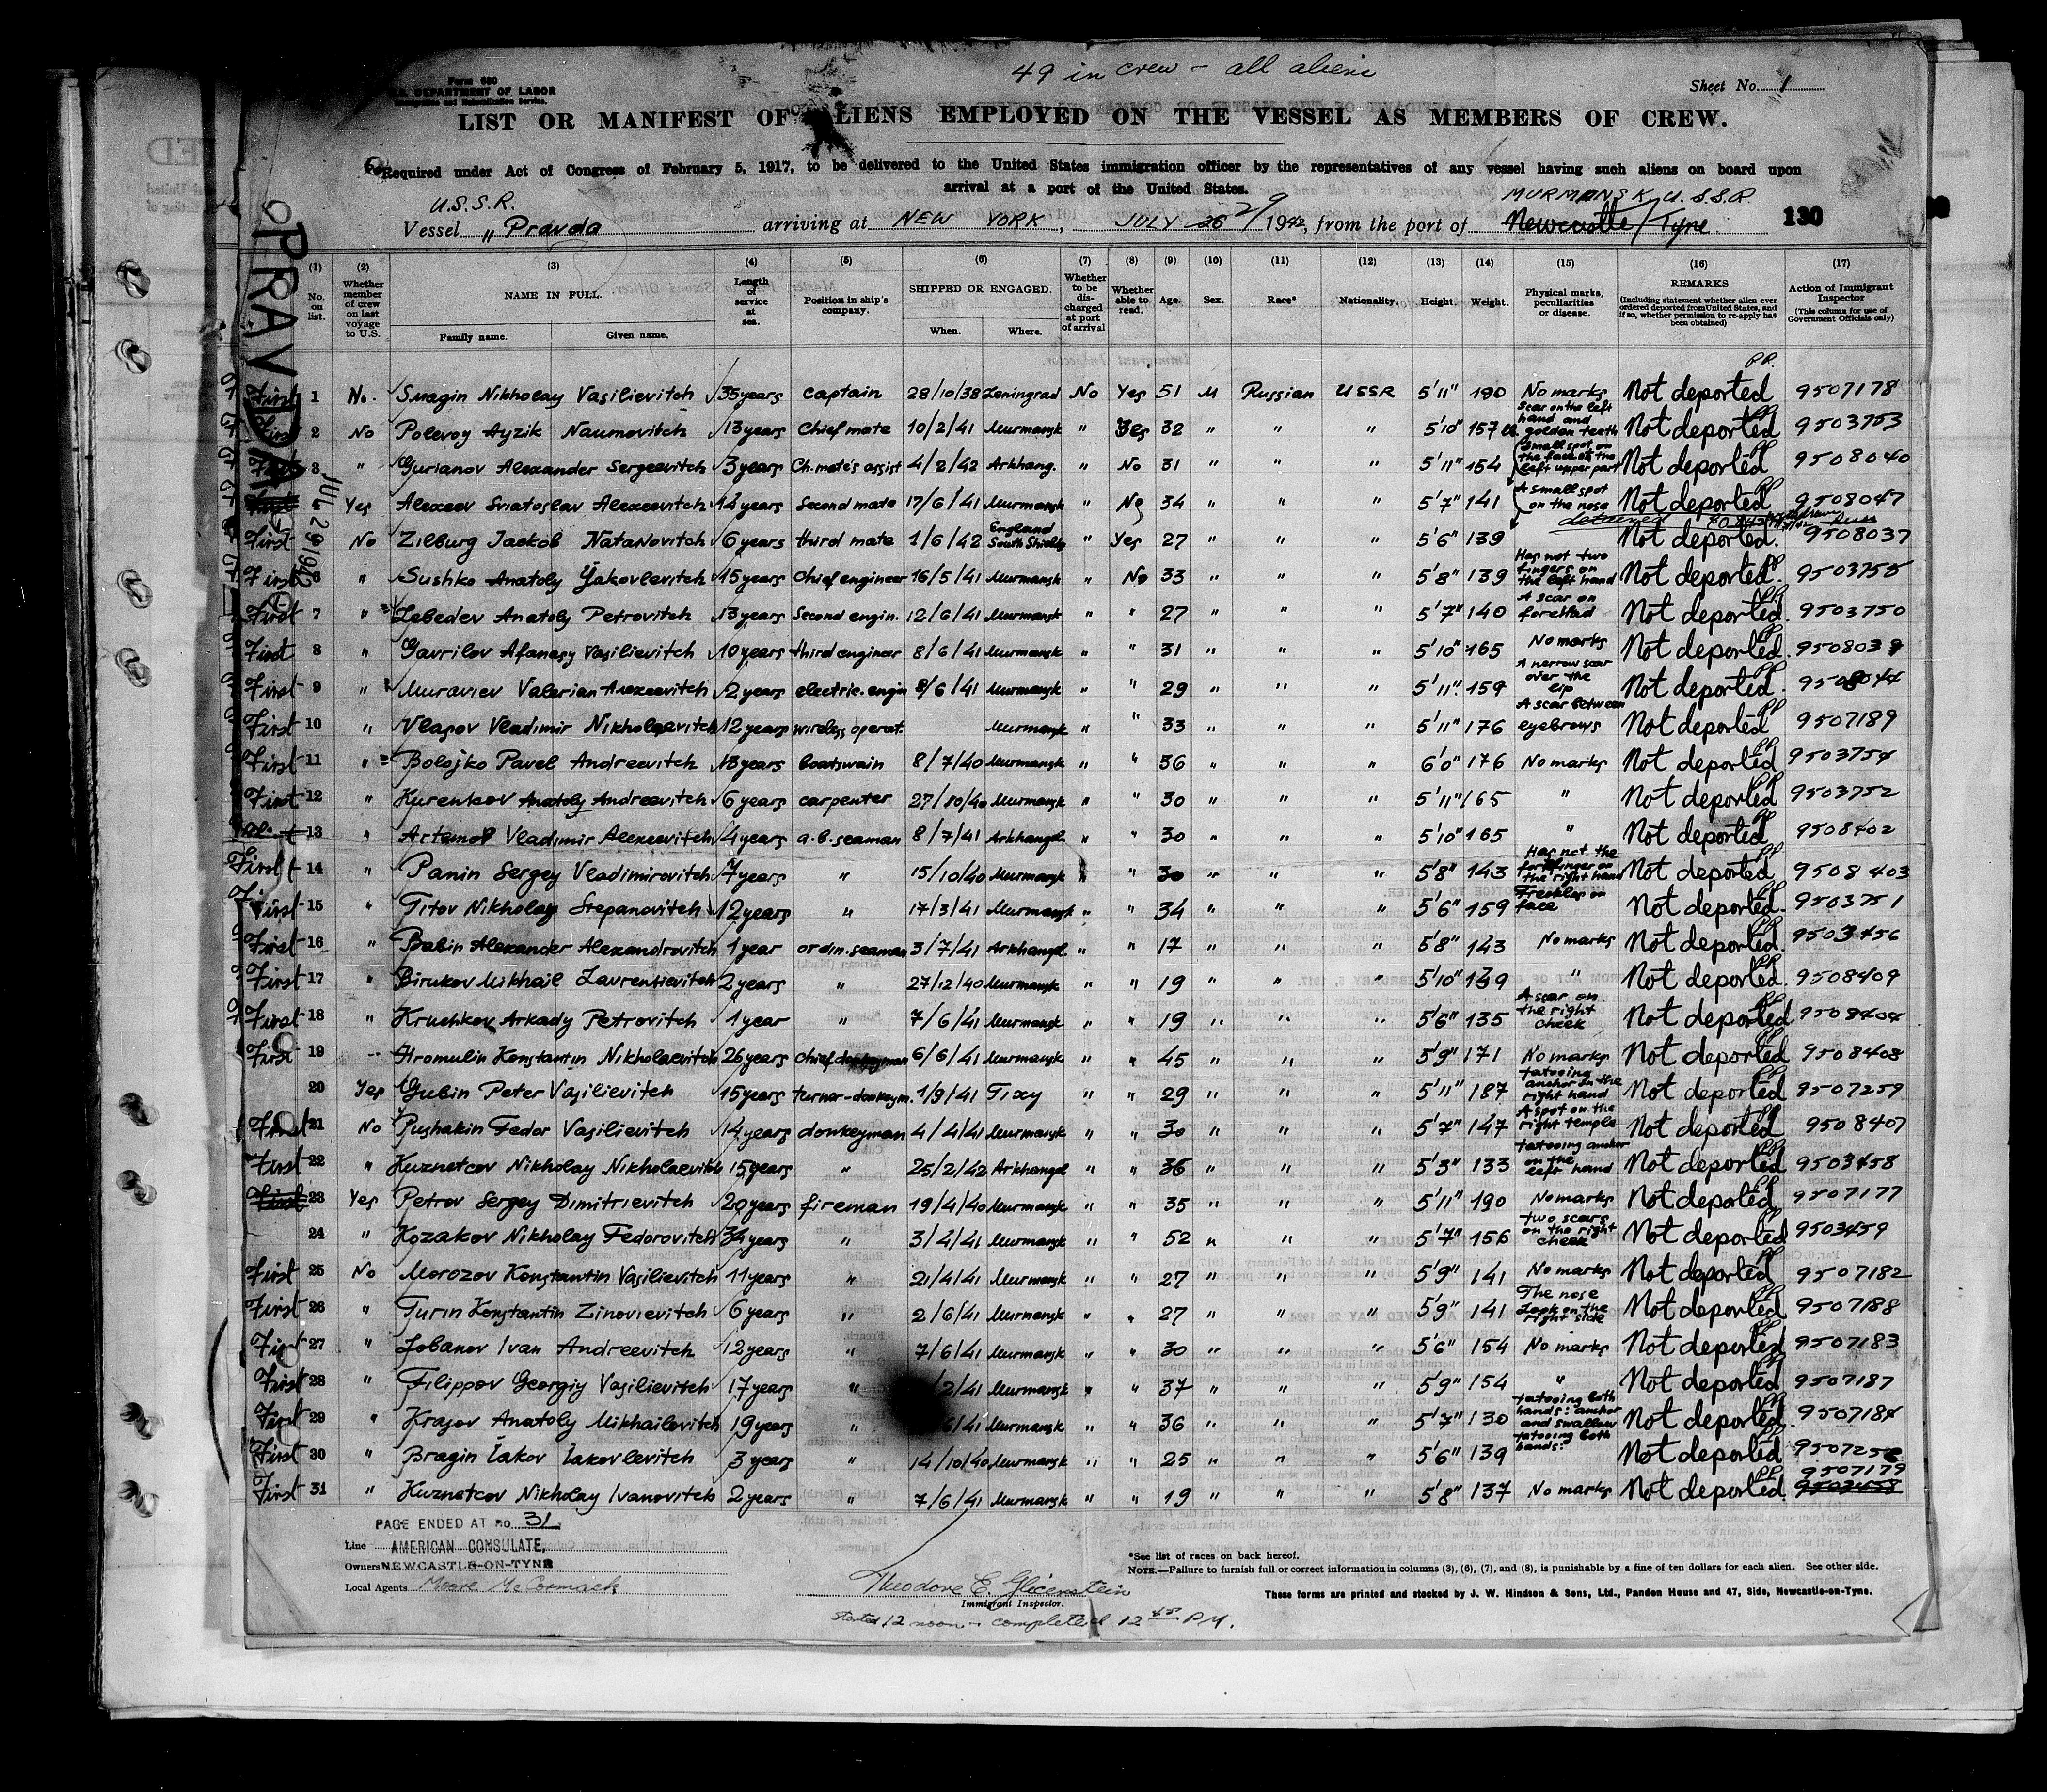 49 in crew - all aliens
Form 680
U.S. DEPARTMENT OF LABOR
Immigration and Naturalization Service.
Sheet No. 1
LIST OR MANIFEST OF ALIENS EMPLOYED ON THE VESSEL AS MEMBERS OF CREW.
Required under Act of Congress of February 5, 1917, to be delivered to the United States immigration officer by the representatives of any vessel having such aliens on board upon
arrival at a port of the United States.
U.S.S.R. MURMANSK U.S.S.R.
Vessel „Pravda arriving at NEW YORK, JULY 26 29 1942, from the port of Newcastle/Tyne 130
PRAVDA
JUL 29 1942
(1) (2) (3) (4) (5) (6) (7) (8) (9) (10) (11) (12) (13) (14) (15) (16) (17)
No. on list. Whether member of crew on last voyage to U.S. NAME IN FULL. Family name. Given name. Length of service at sea. Position in ship's company. SHIPPED OR ENGAGED. When. Where. Whether to be discharged at port of arrival Whether able to read. Age. Sex. Race* Nationality. Height. Weight. Physical marks, peculiarities or disease. REMARKS (Including statement whether alien ever ordered deported from United States, and if so, whether permission to re-apply has been obtained) Action of Immigrant Inspector (This column for use of Government Officials only)
First 1 No. Smagin Nikholay Vasilievitch 35 years captain 28/10/38 Leningrad No Yes 51 M Russian USSR 5'11" 190 No marks Not deported 9507178
First 2 No Polevoy Ayzik Naumovitch 13 years Chief mate 10/2/41 Murmansk " Yes 32 " " " 5'10" 157 Scar on the left hand and golden teeth Not deported 9503753
First 3 " Gurianov Alexander Sergeevitch 3 years Ch. mate's assist 4/2/42 Arkhang. " No 31 " " " 5'11" 154 Small spot on the face on the left upper part Not deported 9508040
First 4 Yes Alexeev Sviatoslav Alexeevitch 14 years Second mate 17/6/41 Murmansk " No 34 " " " 5'7" 141 A small spot on the nose Not deported 9508047
detained
First 5 No Zilburg Jackob Natanovitch 6 years third mate 1/6/42 England South Shields " Yes 27 " " " 5'6" 139 Not deported. 9508037
First 6 " Sushko Anatoly Yakovlevitch 15 years Chief engineer 16/5/41 Murmansk " No 33 " " " 5'8" 139 Has not two fingers on the left hand Not deported. 9503755
First 7 " Lebedev Anatoly Petrovitch 13 years Second engin. 12/6/41 Murmansk " " 27 " " " 5'7" 140 A scar on forehead Not deported. 9503750
First 8 " Gavrilov Afanasy Vasilievitch 10 years third engineer 8/6/41 Murmansk " " 31 " " " 5'10" 165 No marks Not deported.
First 9 " Muraviev Valerian Alexeevitch 2 years electric. engin 8/6/41 Murmansk " " 29 " " " 5'11" 159 A narrow scar over the lip Not deported. 9508044
First 10 " Vlasov Vladimir Nikholaevitch 12 years wireless operat. Murmansk " " 33 " " " 5'11" 176 A scar between eyebrows Not deported 9507189
First 11 " Bolojko Pavel Andreevitch 18 years boatswain 8/7/40 Murmansk " " 36 " " " 6'0" 176 No marks Not deported 9503754
First 12 " Kurenkov Anatoly Andreevitch 6 years carpenter 27/10/40 Murmansk " " 30 " " " 5'11" 165 " Not deported 9503752
13 " Artemov Vladimir Alexeevitch 4 years a.b. seaman 8/7/41 Arkhangel " " 30 " " " 5'10" 165 " Not deported 9508402
First 14 " Panin Sergey Vladimirovitch 7 years " 15/10/40 Murmansk " " 30 " " " 5'8" 143 Has not the forefinger on the right hand Not deported 9508403
First 15 " Titov Nikholay Stepanovitch 12 years " 17/3/41 Murmansk " " 34 " " " 5'6" 159 Freckles on face Not deported. 9503751
First 16 " Babin Alexander Alexandrovitch 1 year ordin. seaman 3/7/41 Arkhangel. " 17 " " " 5'8" 143 No marks Not deported. 9503456
First 17 " Birukov Mikhail Lavrentievitch 2 years " 27/12/40 Murmansk " " 19 " " " 5'10" 139 " Not deported. 9508409
First 18 " Kruchkov Arkady Petrovitch 1 year " 7/6/41 Murmansk " " 19 " " " 5'6" 135 A scar on the right cheek Not deported 9508404
First 19 " Hromulin Konstantin Nikholaevitch 26 years Chief donkeyman 6/6/41 Murmansk " " 45 " " " 5'9" 171 No marks Not deported 9508408
20 Yes Gubin Peter Vasilievitch 15 years turner-donkeym. 1/9/41 Tixy " " 29 " " " 5'11" 187 tatooing anchor on the right hand Not deported 9507259
First 21 No Pushakin Fedor Vasilievitch 14 years donkeyman 4/4/41 Murmansk " " 30 " " " 5'7" 147 A spot on the right temple Not deported 9508407
First 22 " Kuznetcov Nikholay Nikholaevitch 15 years " 25/2/42 Arkhangel " " 36 " " " 5'3" 133 tatooing anchor on the left hand Not deported 9503458
First 23 Yes Petrov Sergey Dimitrievitch 20 years fireman 19/4/40 Murmansk " " 35 " " " 5'11" 190 No marks Not deported 9507177
24 " Kozakov Nikholay Fedorovitch 34 years " 3/4/41 Murmansk " " 52 " " " 5'7" 156 two scars on the right cheek Not deported 9503459
First 25 No Morozov Konstantin Vasilievitch 11 years " 21/4/41 Murmansk " " 27 " " " 5'9" 141 No marks Not deported 9507182
First 26 " Turin Konstantin Zinovievitch 6 years " 2/6/41 Murmansk " " 27 " " " 5'9" 141 The nose Look on the right side Not deported 9507188
First 27 " Lobanov Ivan Andreevitch 12 years " 7/6/41 Murmansk " " 30 " " " 5'6" 154 No marks Not deported 9507183
First 28 " Filippov Georgiy Vasilievitch 17 years " /2/41 Murmansk " " 37 " " " 5'9" 154 " Not deported 9507187
First 29 " Krasov Anatoly Mikhailovitch 19 years " 6/41 Murmansk " " 36 " " " 5'7" 130 tatooing both hands: anchor and swallow Not deported. 9507184
First 30 " Bragin Iakov Iakovlevitch 3 years " 14/10/40 Murmansk " " 25 " " " 5'6" 139 tatooing both hands: Not deported
First 31 " Kuznetcov Nikholay Ivanovitch 2 years " 7/6/41 Murmansk " " 19 " " " 5'8" 137 No marks Not deported. 9507179
PAGE ENDED AT No. 31
Line AMERICAN CONSULATE,
Owners NEWCASTLE-ON-TYNE
Local Agents Moore McCormack
Theodore E. Glicenstein
Immigrant Inspector.
started 12 noon - completed 12 45 P.M.
*See list of races on back hereof.
NOTE.—Failure to furnish full or correct information in columns (3), (6), (7), and (8), is punishable by a fine of ten dollars for each alien. See other side.
These forms are printed and stocked by J. W. Hindson & Sons, Ltd., Pandon House and 47, Side, Newcastle-on-Tyne.